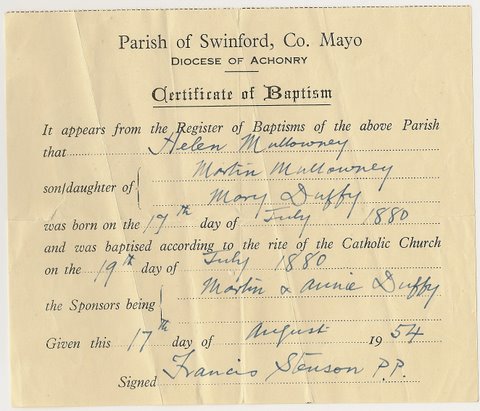 Parish of Swinford, Co. Mayo
DIOCESE OF ACHONRY
Certificate of Baptism
It appears from the Register of Baptisms of the above Parish
that Helen Mullowney
Martin Mullowney
son/daughter of
Mary Duffy
was born on the 17th day of July 1880
and was baptised according to the rite of the Catholic Church
on the 19th day of July 1880
Martin & Annie Duffy
the Sponsors being
Given this 17th day of August 1954
Signed Francis Stenson P.P.